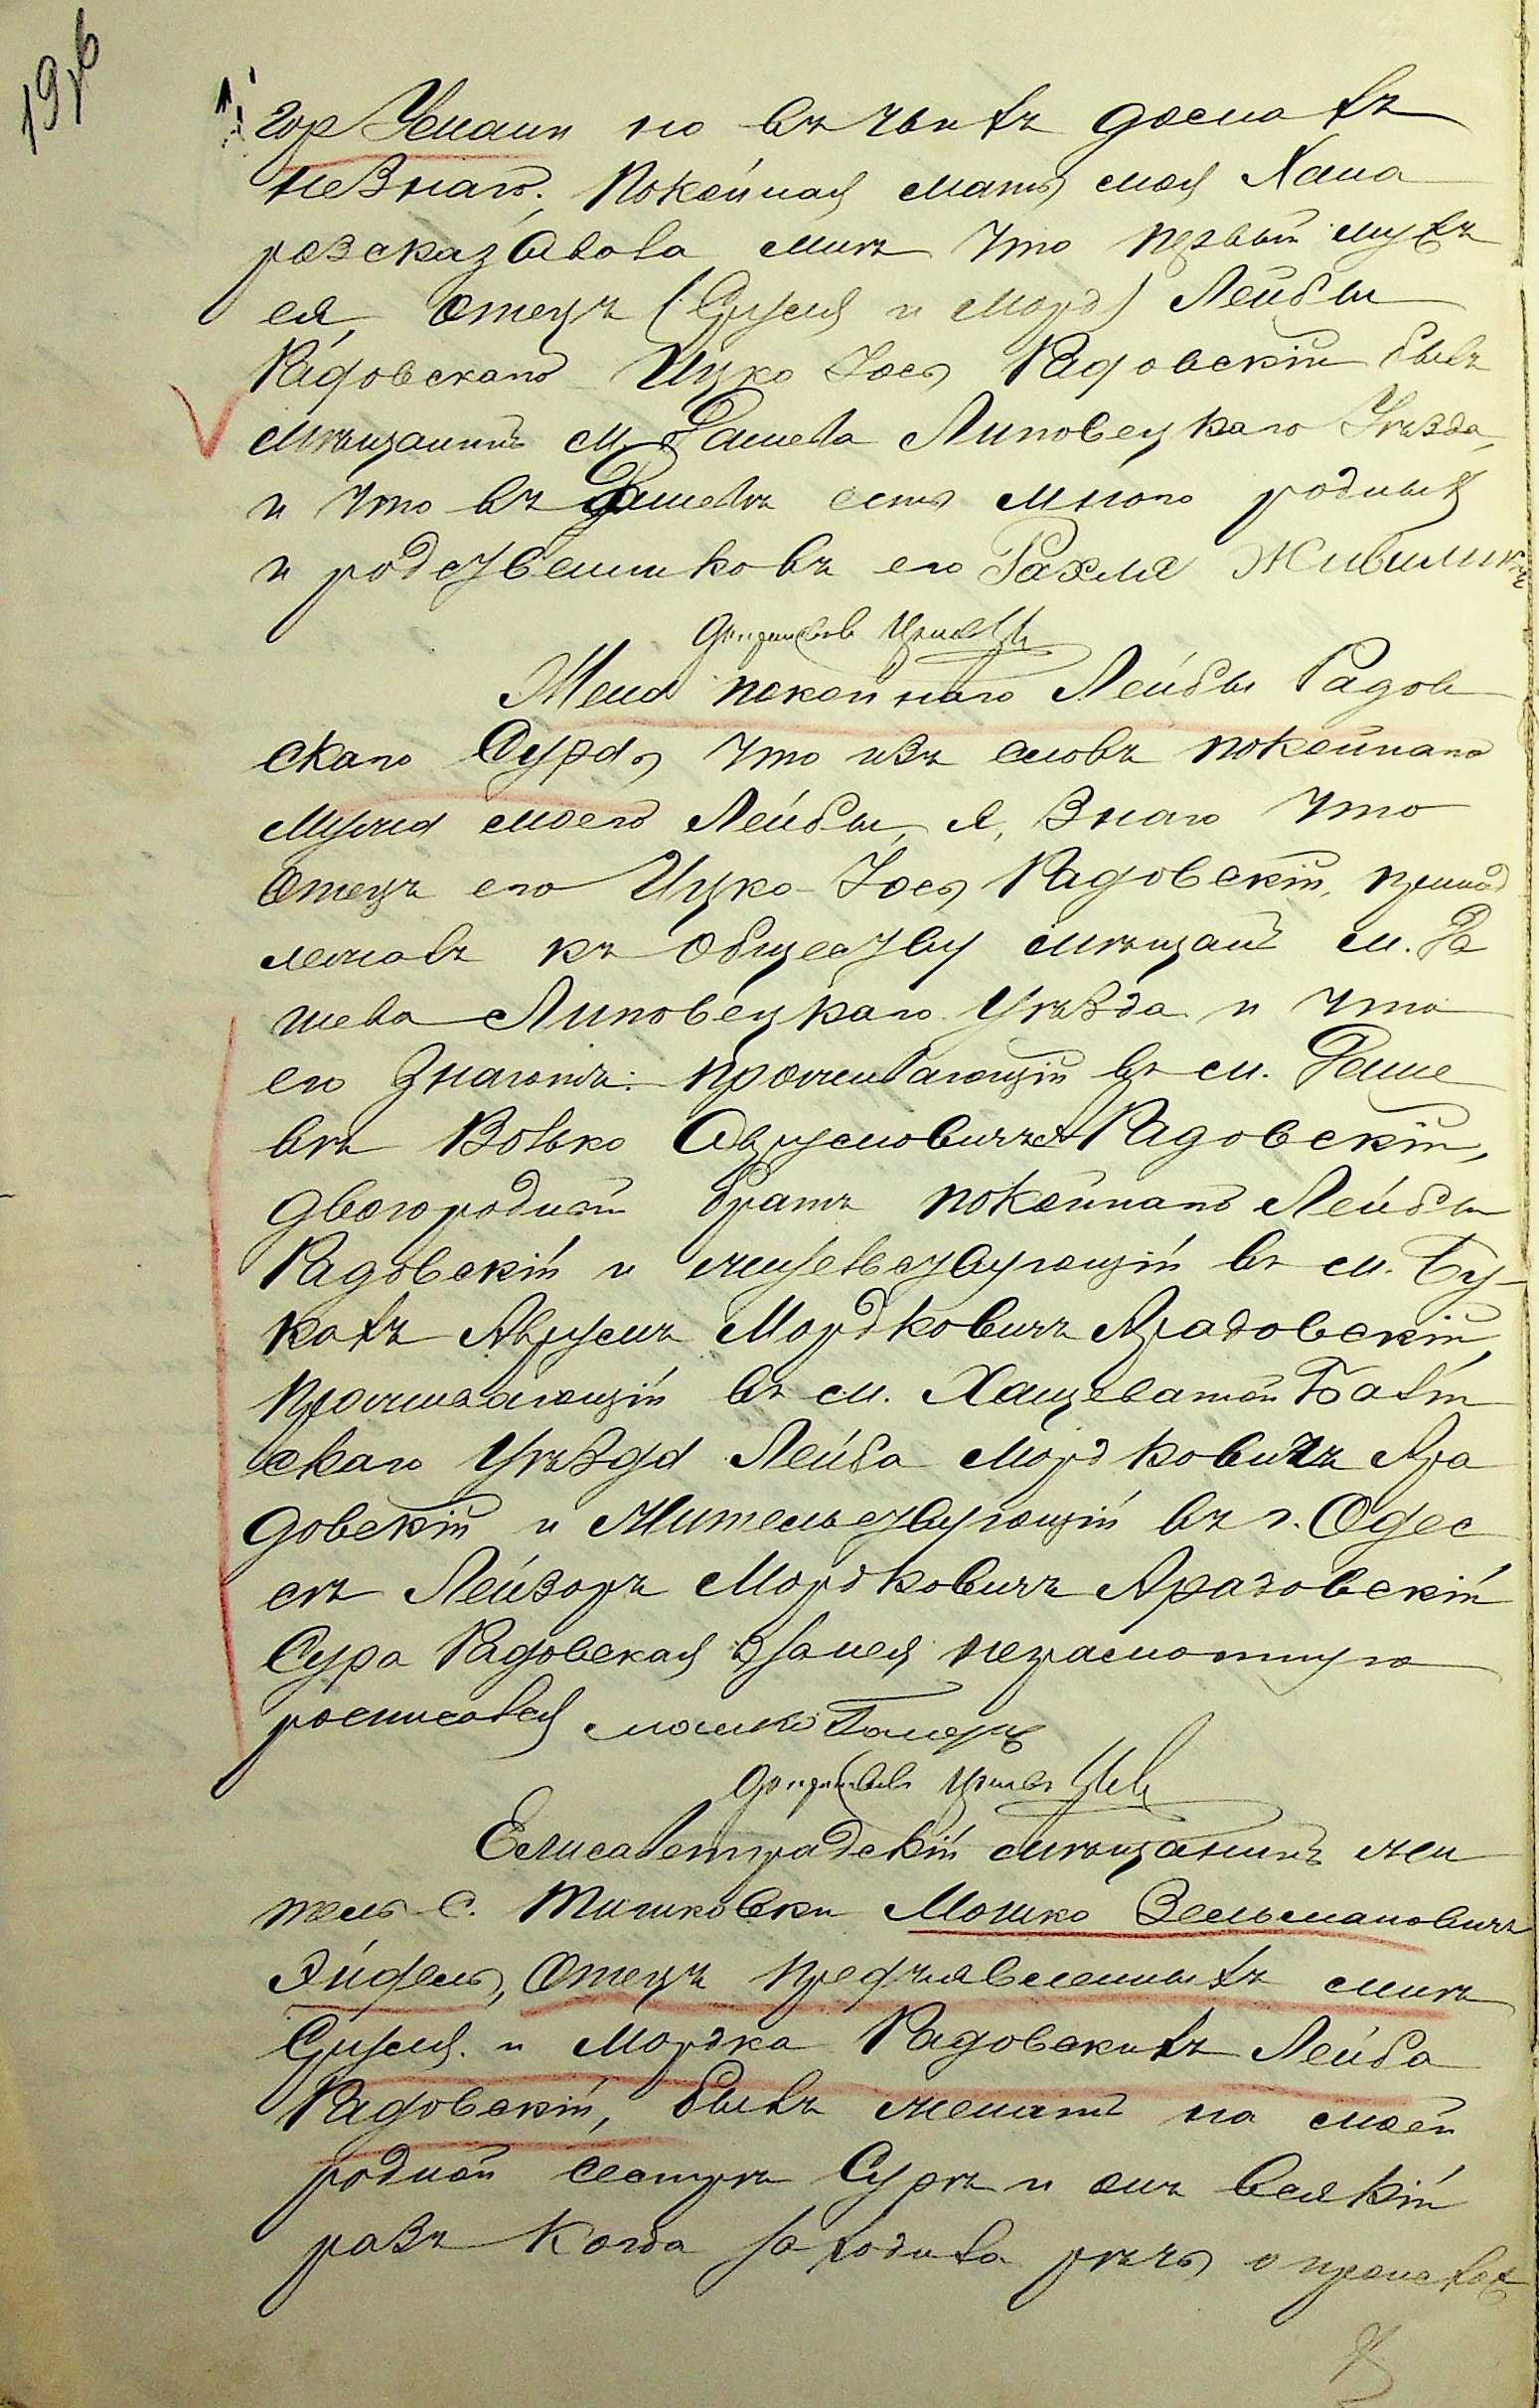 19об
гор Умани но въ чьихъ домахъ
незнаю; Покойная мать моя Хана
розсказывала мнѣ что первый мужъ
ея, отецъ (Сруля и Морд) Лейбы
Радовскаго Ицко Іось Радовскій былъ
мѣщанинъ м. Дашева Липовецкаго Уѣзда,
и что въ Дашевѣ есть много родныхъ
и родственниковъ его Рахмиль
Жена покойнаго Лейбы Радов
скаго Сура, что изъ словъ покойнаго
мужа моего Лейбы, я, знаю что
отецъ его Ицко-Іось Радовскій, принад
лежалъ къ обществу мѣщанъ м. Да
шева Липовецкаго Уѣзда и что
его знаютъ: проживающій въ м. Даше
вѣ Волько Сруловичъ Радовскій,
двоюродный братъ покойнаго Лейбы
Радовскій и жительствующій въ м. Бу-
кахъ Аврумъ Мордковичъ Ярадовскій,
проживающій въ м. Хащеватой Балт
скаго Уѣзда Лейба Мордковичъ Яра
довскій и жительствующій въ г. Одес
сѣ Лейзоръ Мордковичъ Ярадовскій
Сура Радовская занея неграмотную
росписался Мошко
Елисаветградскій мѣщанинъ жи
тель с. Тишковки Мошко Зельмановичъ
Эйдель, отецъ предъявленныхъ мнѣ
Сруля. и Мордка Радовскихъ Лейба
Радовскій, былъ женатъ на моей
родной сестрѣ Сурѣ и онъ всякій
разъ когда заходила рѣчь о происхож